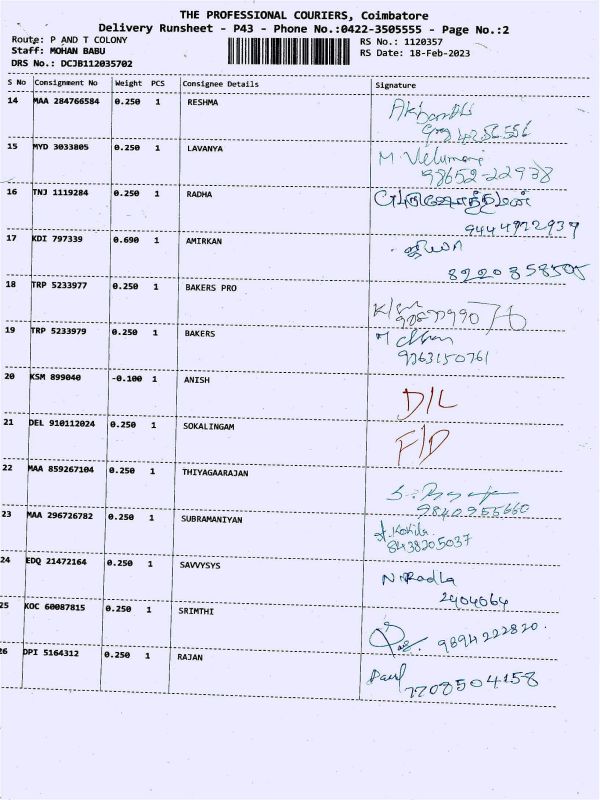 THE PROFESSIONAL COURIERS, Coimbatore
Delivery Runsheet - P43 - Phone No.:0422-3505555 - Page No.:2
Route: P AND T COLONY RS No.: 1120357
Staff: MOHAN BABU RS Date: 18-Feb-2023
DRS No.: DCJB112035702
S No Consignment No Weight PCS Consignee Details Signature
14 MAA 284766584 0.250 1 RESHMA
15 MYD 3033805 0.250 1 LAVANYA M. Velumani
98652-22938
16 TNJ 1119284 0.250 1 RADHA
9444972939
17 KDI 797339 0.690 1 AMIRKAN
8220358505
18 TRP 5233977 0.250 1 BAKERS PRO
19 TRP 5233979 0.250 1 BAKERS
9363150761
20 KSM 899040 -0.100 1 ANISH D/L
21 DEL 910112024 0.250 1 SOKALINGAM F/D
22 MAA 859267104 0.250 1 THIYAGAARAJAN
9840955660
23 MAA 296726782 0.250 1 SUBRAMANIYAN Kokila
8438205037
24 EDQ 21472164 0.250 1 SAVVYSYS N. Radha
2404064
25 KOC 60087815 0.250 1 SRIMTHI 9894222820.
26 DPI 5164312 0.250 1 RAJAN Paul
7708504158